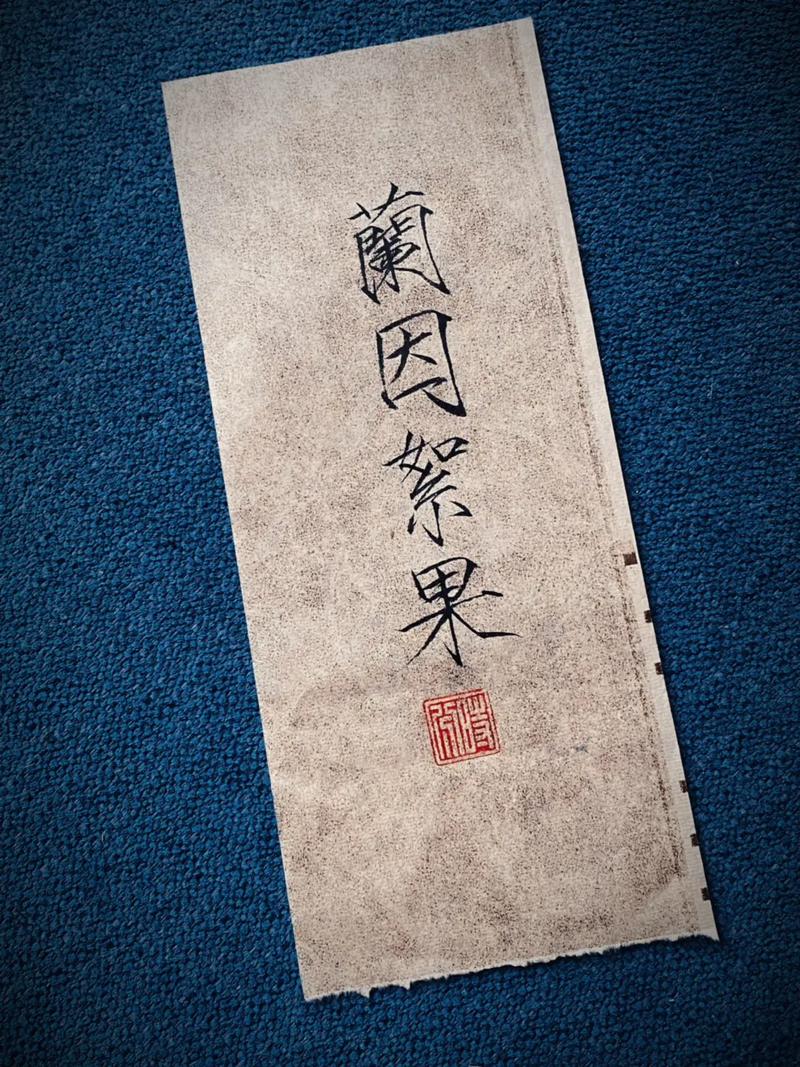 蘭因絮果